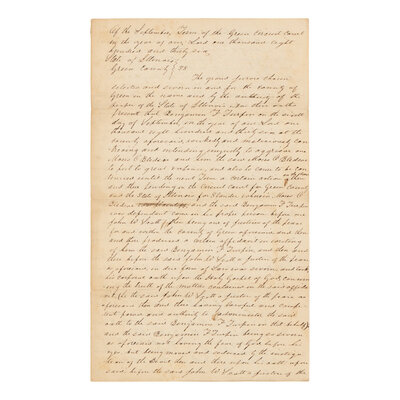 Of the September Term of the Green Circuit Court
in the year of our Lord one thousand eight
hundred and thirty six
State of Illinois
Green County } SS
The grand jurors chosen
selected and sworn in and for the county of
Green in the name and by the authority of the
people of the State of Illinois upon their oath
present that Benjamin F Turpin on the sixth
day of September in the year of our Lord one
thousand eight hundred and thirty six at the
county aforesaid wickedly and maliciously con
triving and intending unjustly to aggrieve one
Moses Bledsoe and him the said Moses Bledsoe
to put to great expense and also to cause to
under the next Term a certain action
and then pending in the Circuit Court for Green County
and the State of Illinois for Slander wherein Moses
Bledsoe and the said Benjamin F Turpin
was defendant came in his proper person before one
John W Scott then being one of justices of the peace
for and within the county of Green aforesaid and then
and there produced a certain affidavit in writing
of him the said Benjamin F Turpin and then and
there before the said John W Scott a justice of the peace
as aforesaid in due form of Law was sworn and took
his corporal oath upon the Holy Gospel of God concern
ing the truth of the matters contained in the said affida
vit he the said John W Scott a justice of the peace as
aforesaid then and there having lawful and compe
tent power and authority to administer the said
oath to the said Benjamin F Turpin in that behalf
and the said Benjamin F Turpin being so sworn
as aforesaid not having the fear of God before his
eyes but being moved and seduced by the instiga
tion of the Devil then and there upon his oath afore
said before the said John W Scott a justice of the